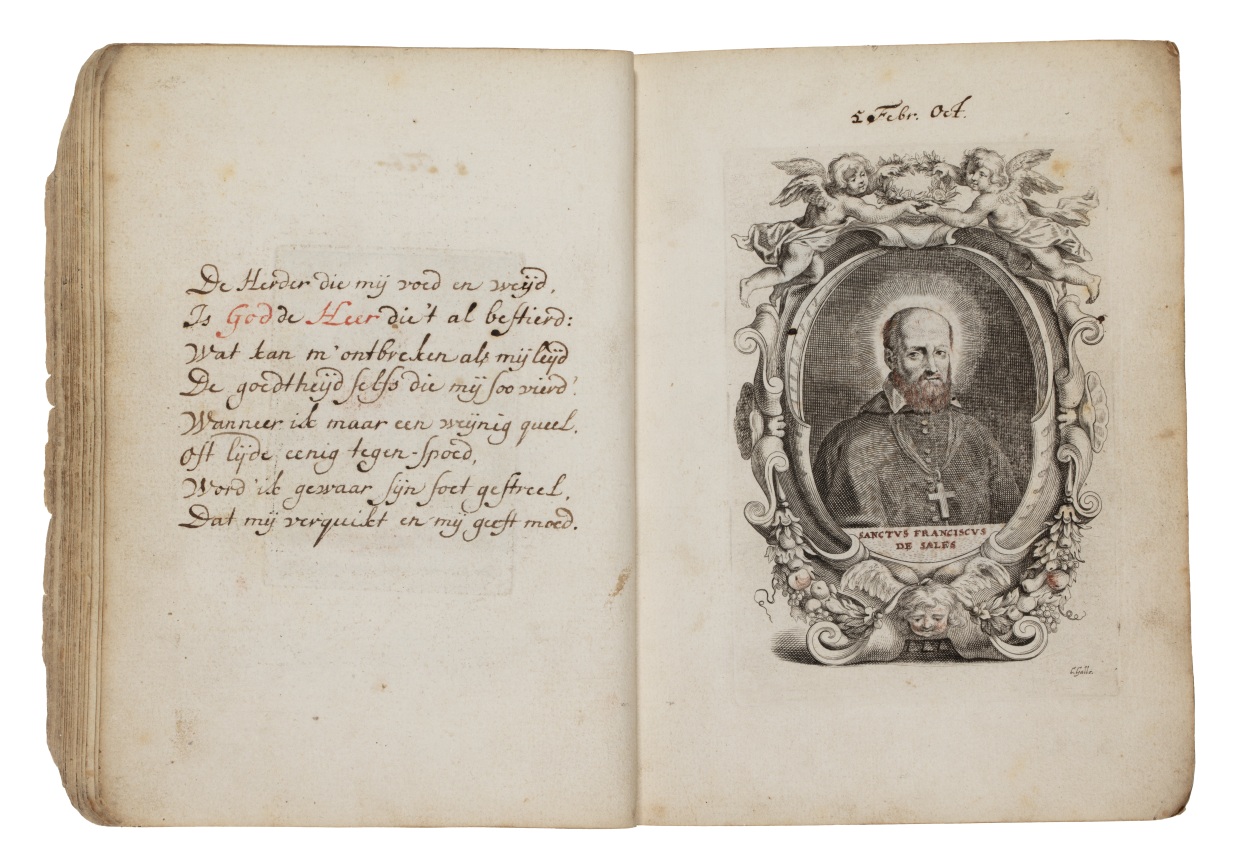 De Herder die mij voed en weijd,
Is God de Heer die't al bestierd:
Wat kan m'ontbreken als mij leijd
De goedtheijd selfs die mij soo vierd?
Wanneer ik maar een weijnig queel,
Oft lijde eenig tegen-spoed,
Word ik gewaar sijn soet gestreel,
Dat mij verquikt en mij geeft moed.
Febr. Oct.
SANCTVS FRANCISCVS
DE SALES
C Galle.